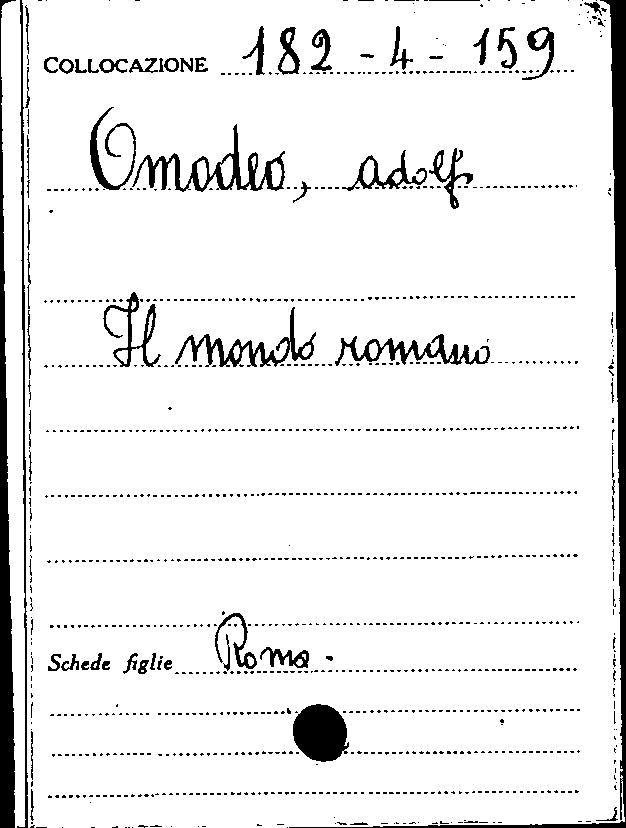 COLLOCAZIONE 182-4-159
Omodeo, Adolfo
Il mondo romano
Schede figlie Roma.